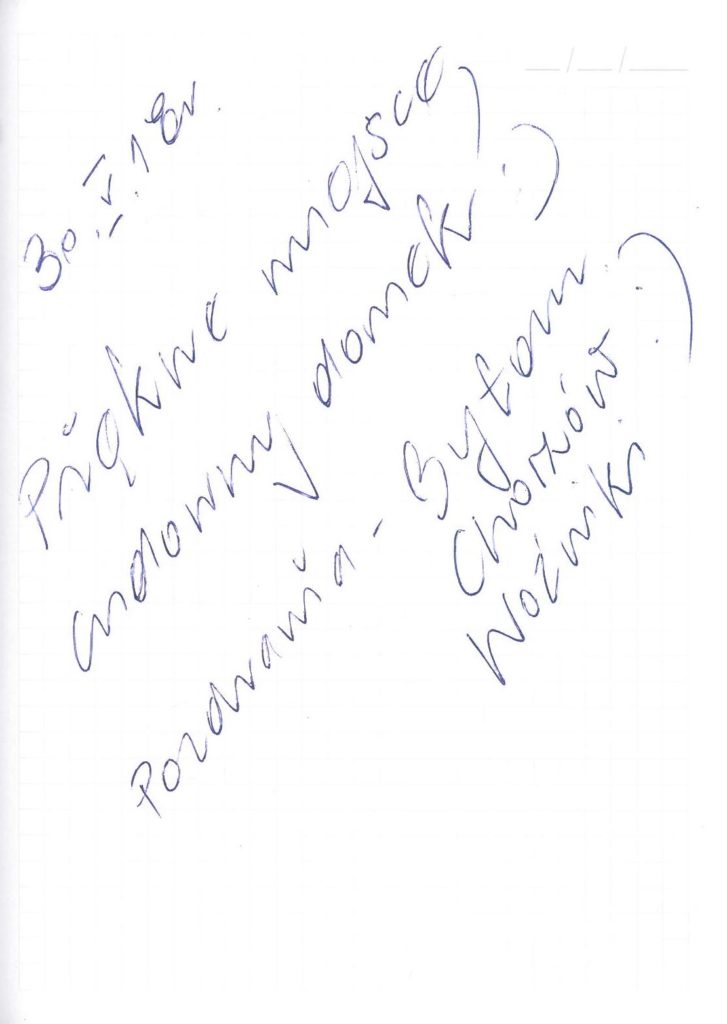 30.V.18r.
Piękne miejsce,
cudowny domek :)
Pozdrawia - Bytom
Chorzów :)
Woźniki